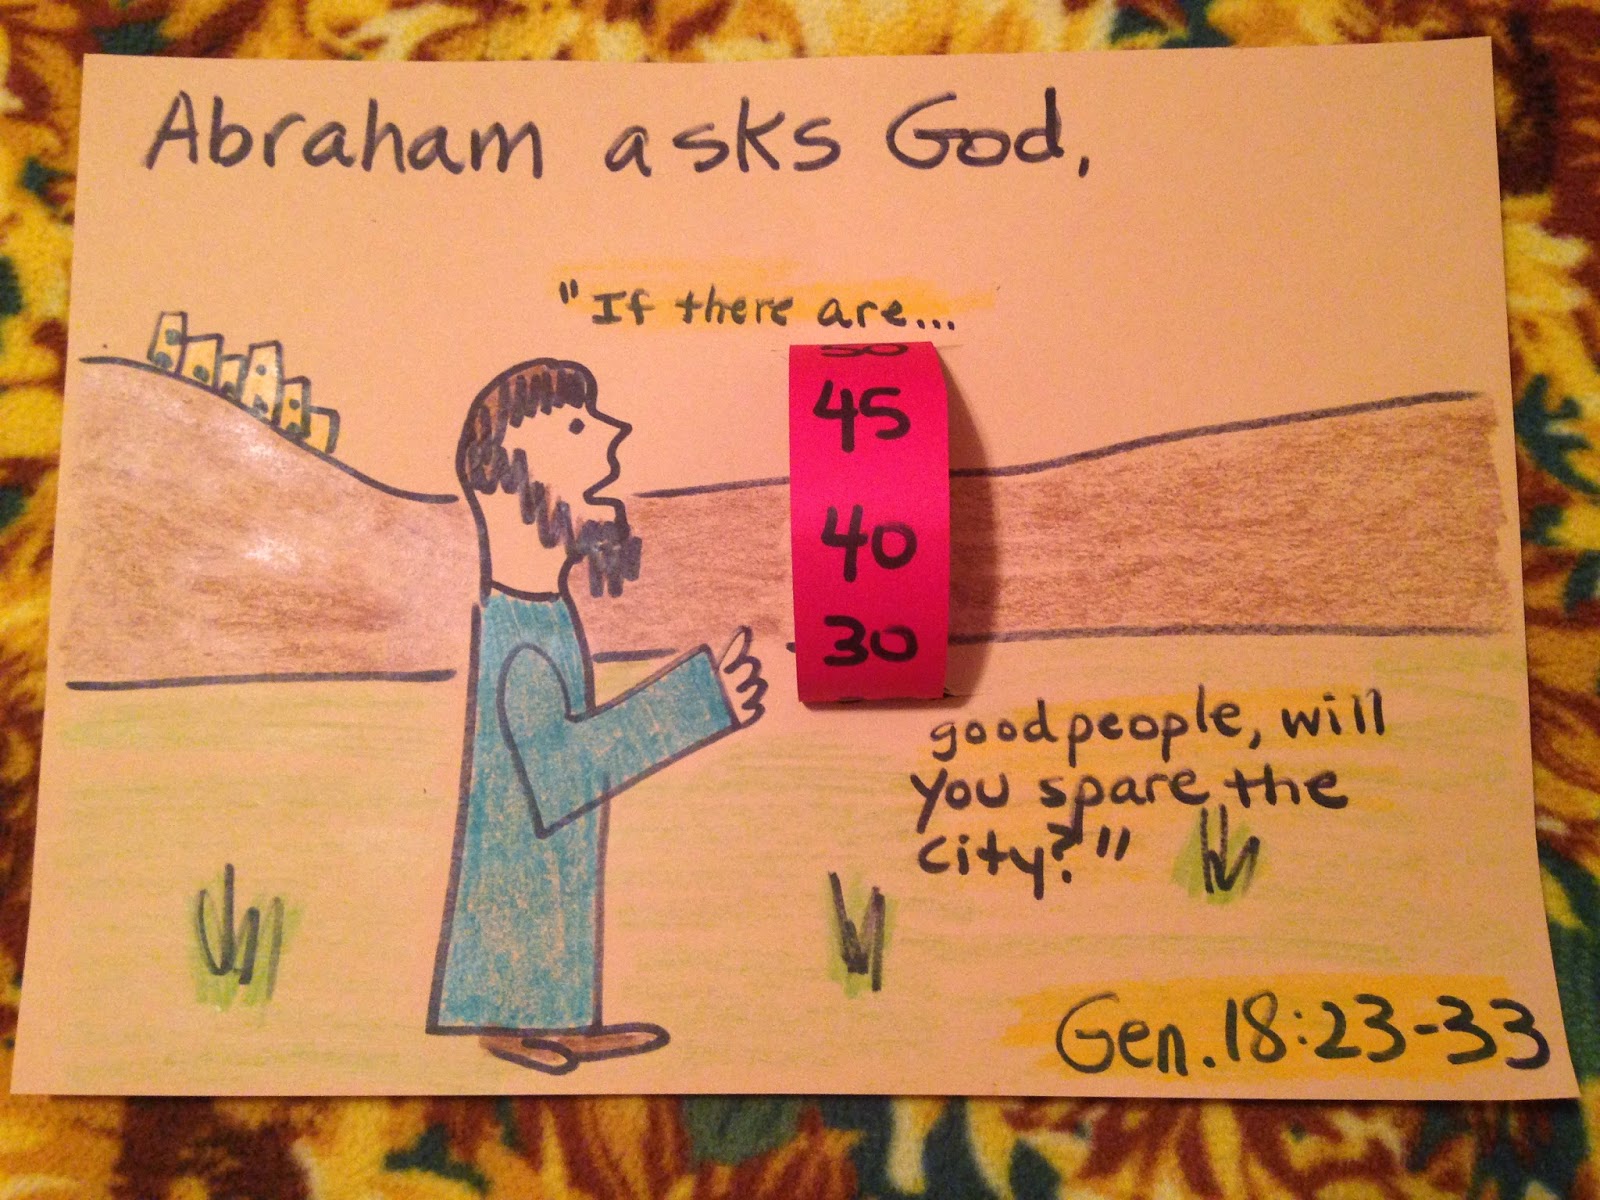 Abraham asks God,
"If there are...
50
45
40
30
good people, will
you spare the
city?"
Gen. 18:23-33